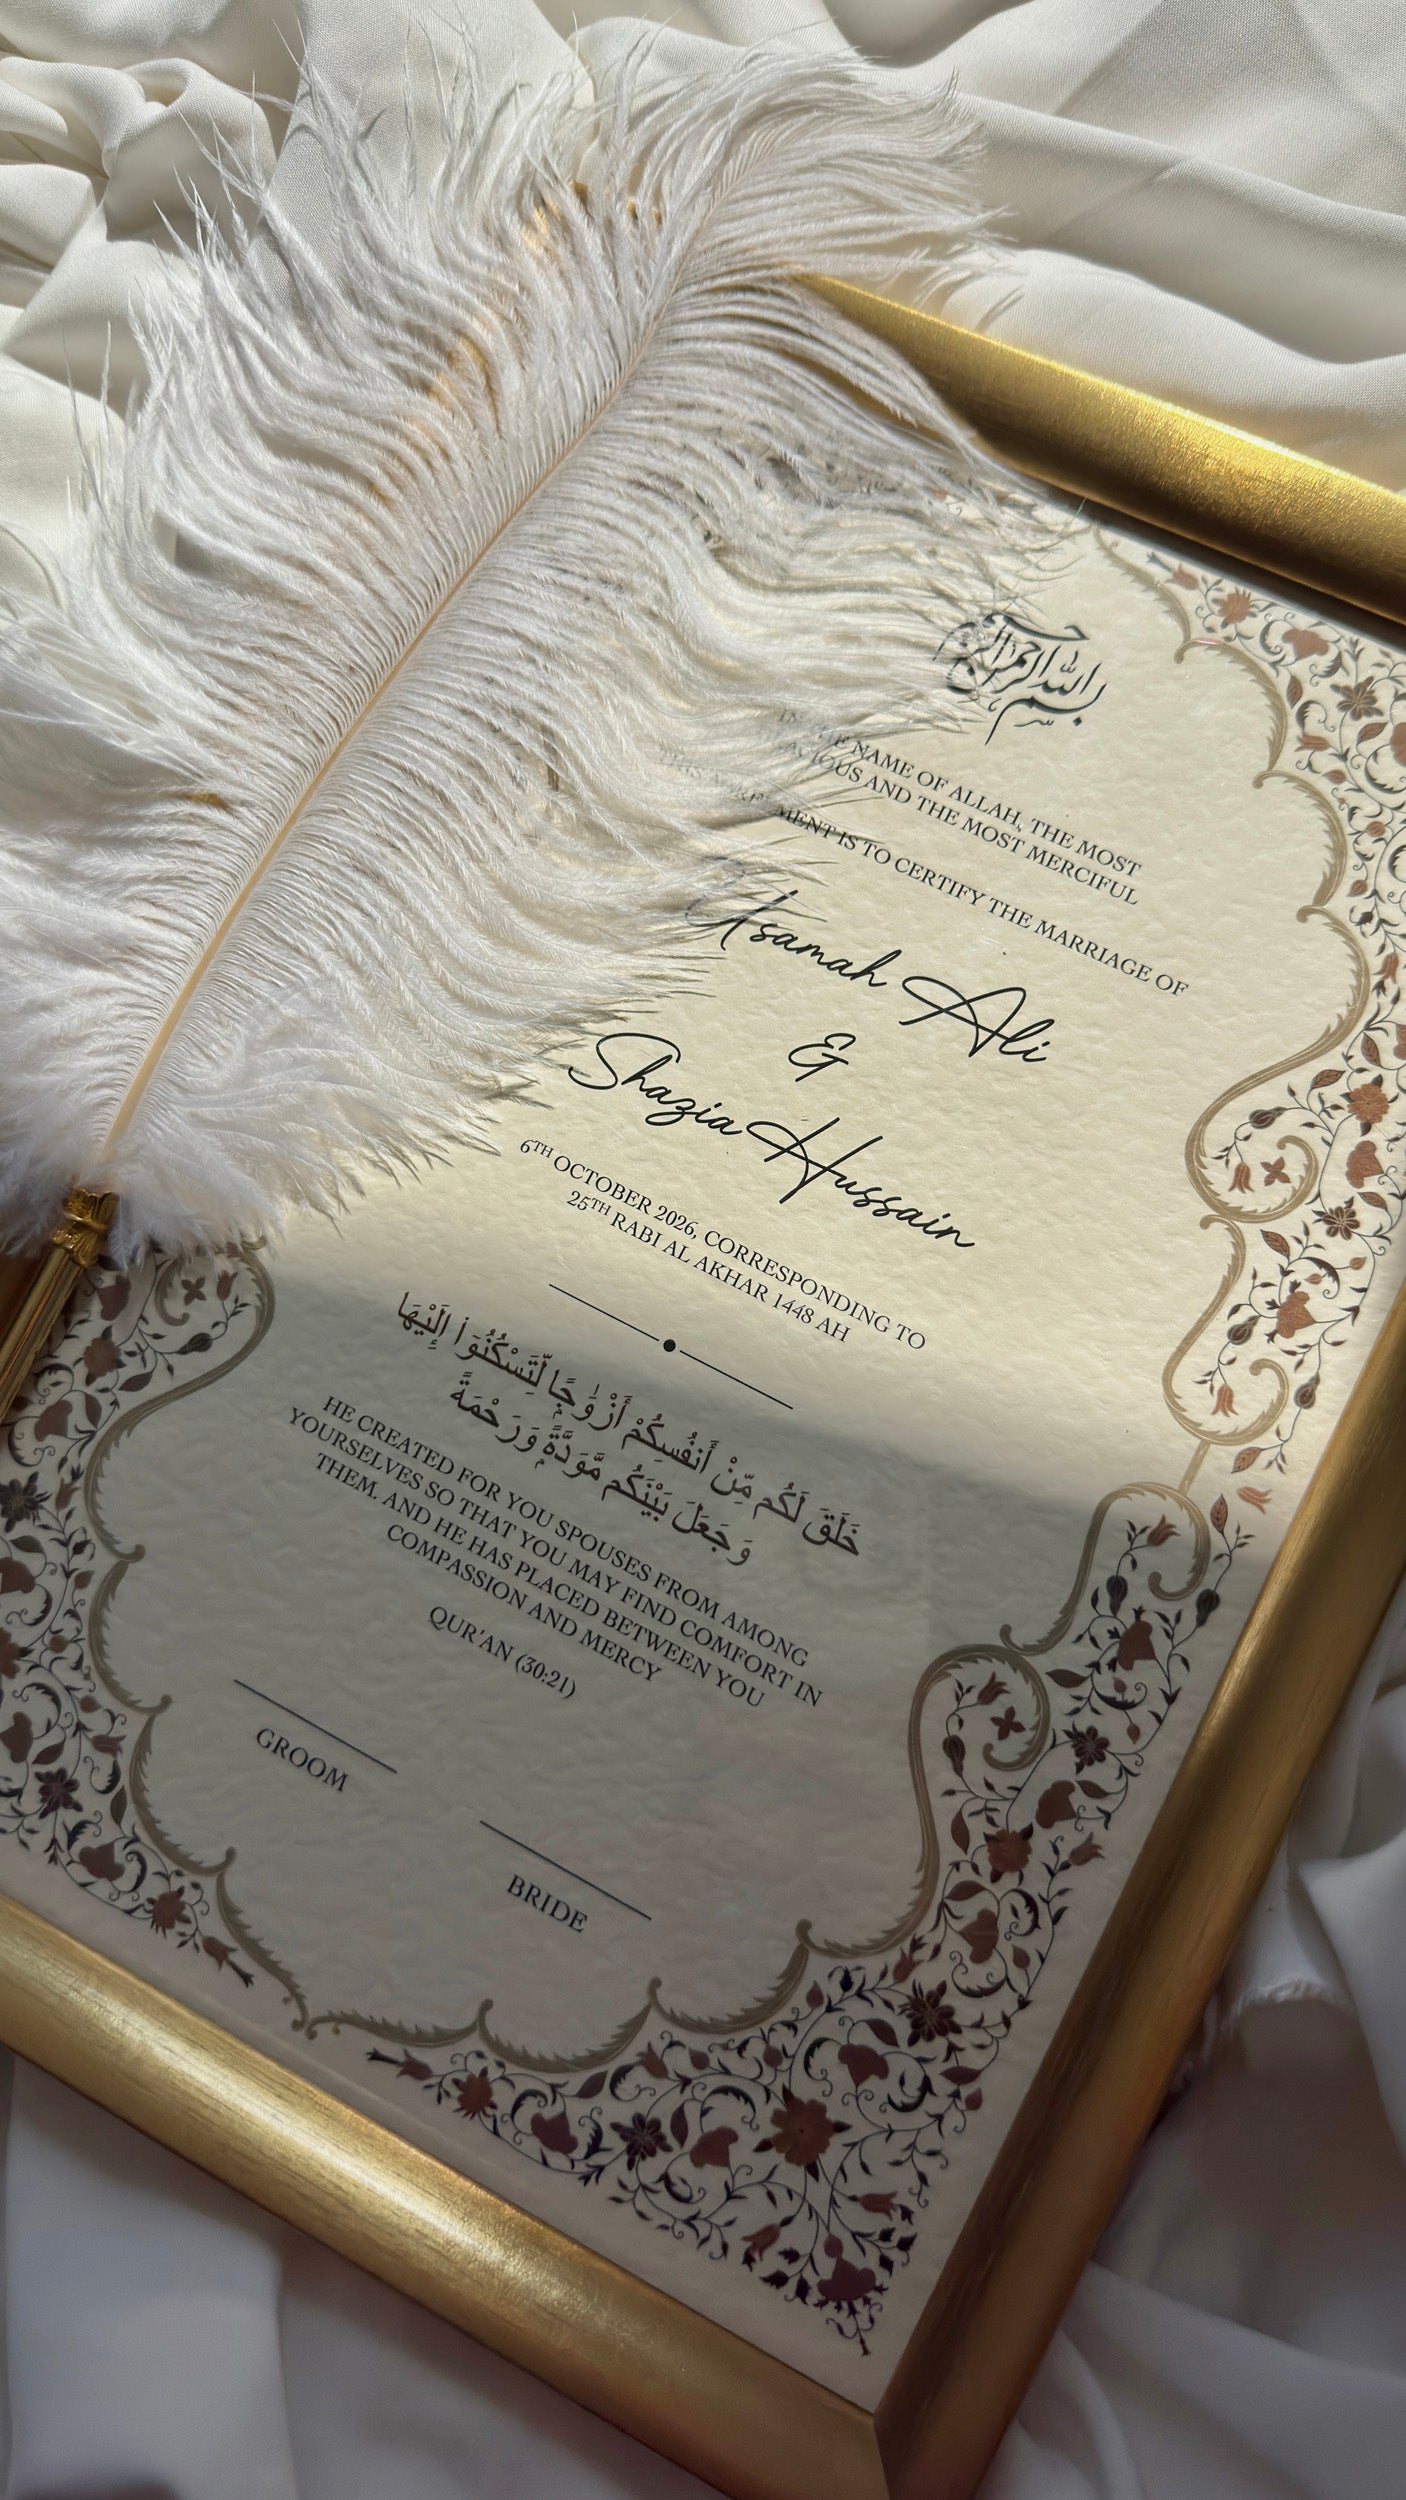 بسم الله الرحمن الرحيم
IN THE NAME OF ALLAH, THE MOST
GRACIOUS AND THE MOST MERCIFUL
THIS AGREEMENT IS TO CERTIFY THE MARRIAGE OF
Usamah Ali
&
Shazia Hussain
6TH OCTOBER 2026, CORRESPONDING TO
25TH RABI AL AKHAR 1448 AH
خَلَقَ لَكُم مِّنْ أَنفُسِكُمْ أَزْوَٰجًا لِّتَسْكُنُوٓا۟ إِلَيْهَا
وَجَعَلَ بَيْنَكُم مَّوَدَّةً وَرَحْمَةً
HE CREATED FOR YOU SPOUSES FROM AMONG
YOURSELVES SO THAT YOU MAY FIND COMFORT IN
THEM. AND HE HAS PLACED BETWEEN YOU
COMPASSION AND MERCY
QUR'AN (30:21)
GROOM
BRIDE